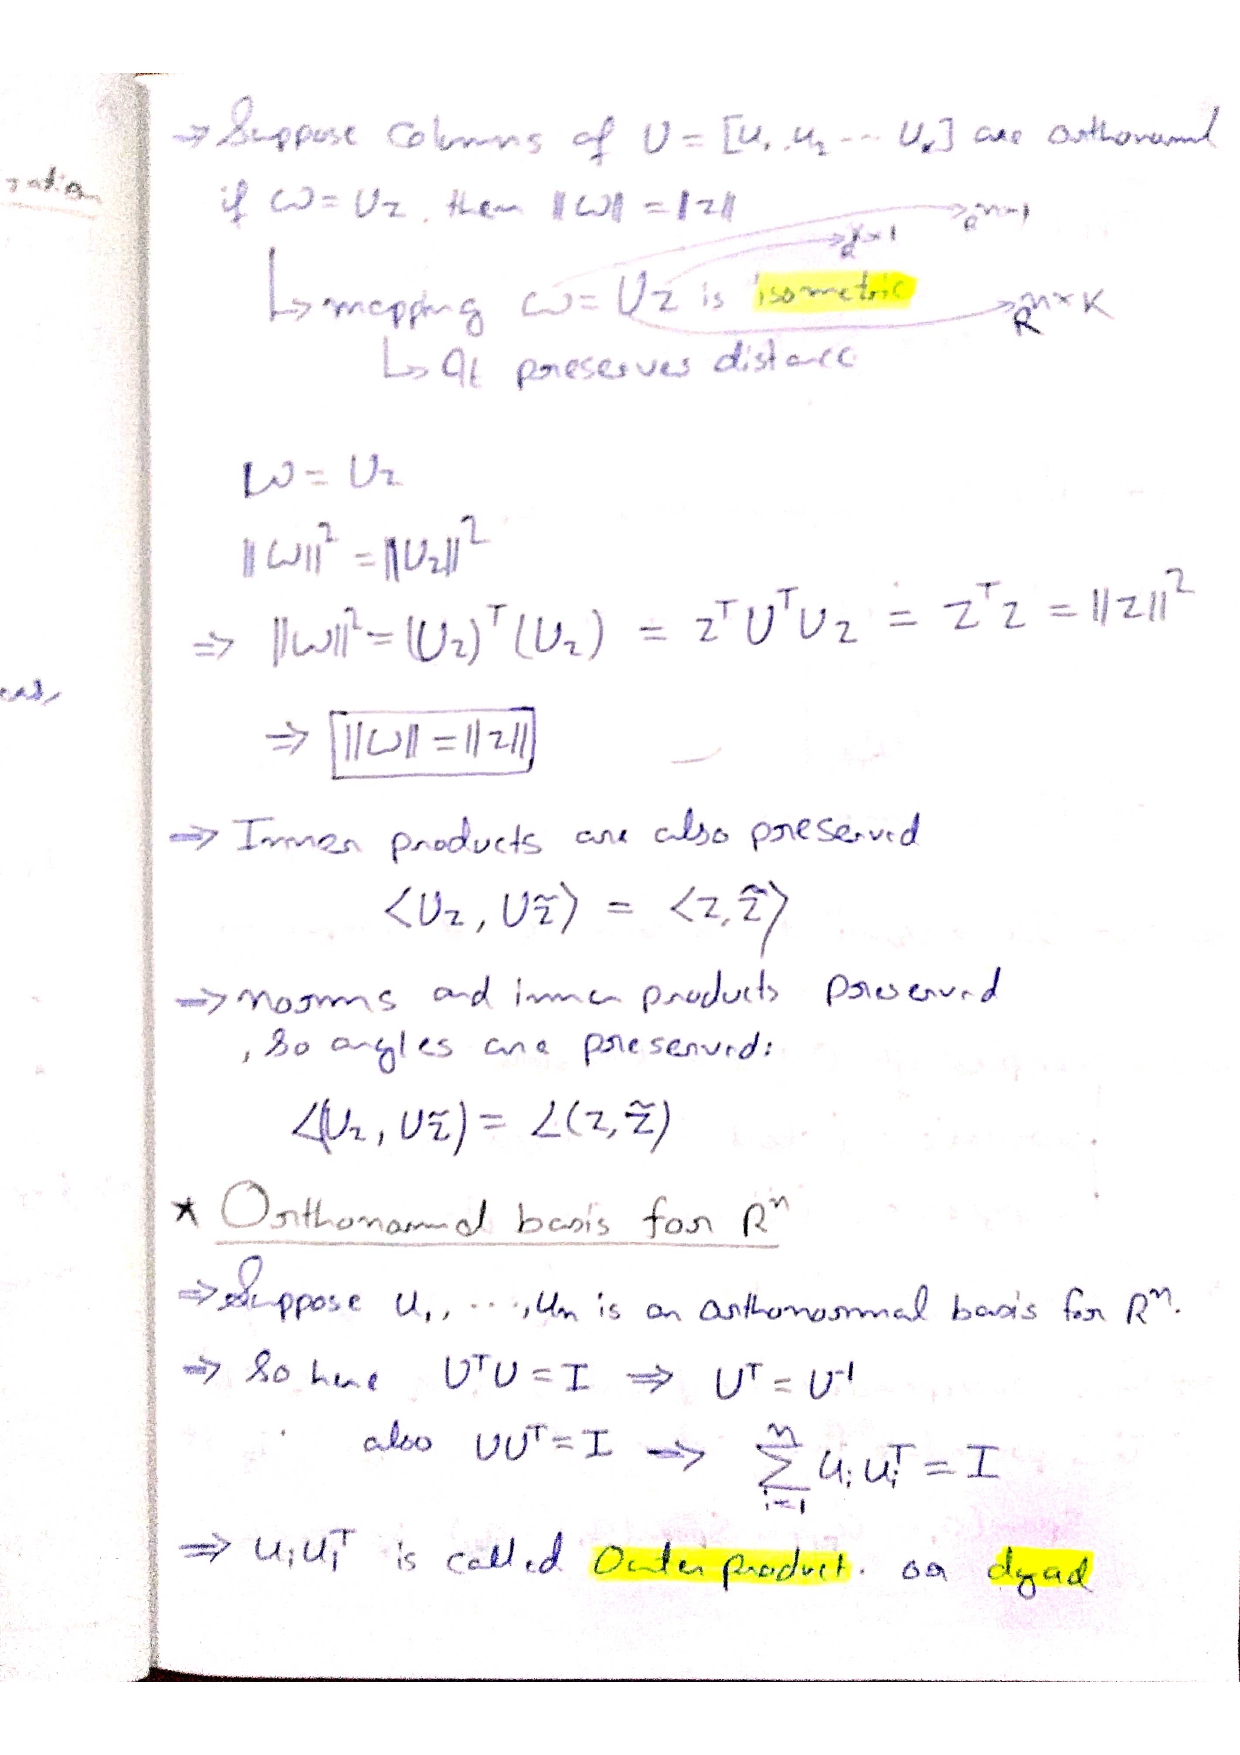 ⇒ Suppose Columns of U = [u₁ u₂ ... uₖ] are orthonormal
if ω = Uz, then ‖ω‖ = ‖z‖
R^{n×1}
R^{k×1}
↳ mapping ω = Uz is isometric
R^{n×K}
↳ It preserves distance
ω = Uz
‖ω‖² = ‖Uz‖²
⇒ ‖ω‖² = (Uz)ᵀ(Uz) = zᵀUᵀUz = zᵀz = ‖z‖²
⇒ ‖ω‖ = ‖z‖
⇒ Inner products are also preserved
<Uz, Uz̃> = <z, z̃>
⇒ norms and inner products preserved
, So angles are preserved:
∠(Uz, Uz̃) = ∠(z, z̃)
* Orthonormal basis for Rⁿ
⇒ Suppose u₁, ..., uₙ is an orthonormal basis for Rⁿ.
⇒ So here UᵀU = I ⇒ Uᵀ = U⁻¹
also UUᵀ = I ⇒ Σ_{i=1}^{n} uᵢuᵢᵀ = I
⇒ uᵢuᵢᵀ is called Outer product. or dyad